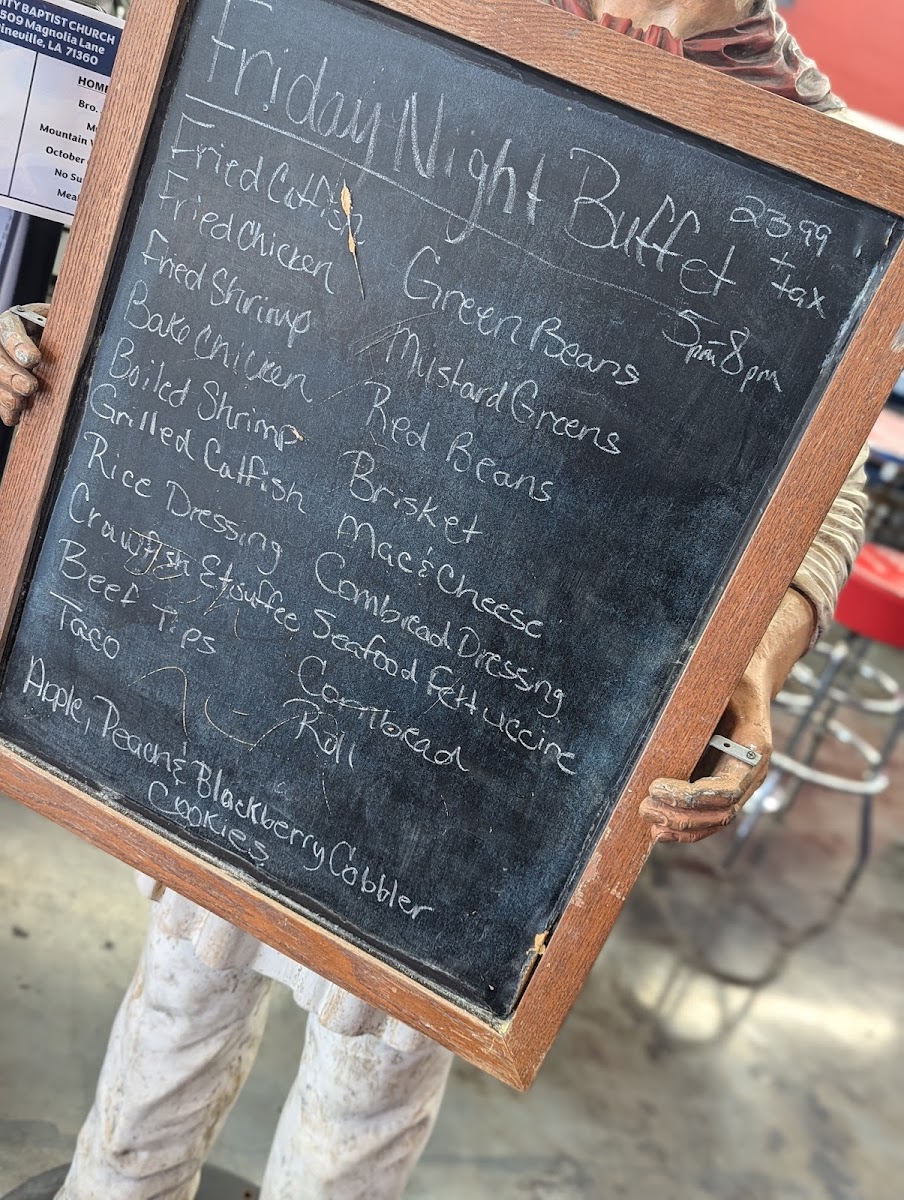 ITY BAPTIST CHURCH
509 Magnolia Lane
ineville, LA 71360
HOME
Bro.
Mountain
October
No Su
Mea
Friday Night Buffet
23.99
+
tax
5pm-8pm
Fried Catfish
Fried Chicken
Fried Shrimp
Bake Chicken
Boiled Shrimp
Grilled Catfish
Rice Dressing
Crawfish Etouffee
Beef Tips
Taco
Green Beans
Mustard Greens
Red Beans
Brisket
Mac & Cheese
Cornbread Dressing
Seafood Fettuccine
Cornbread
Roll
Apple, Peach & Blackberry Cobbler
Cookies